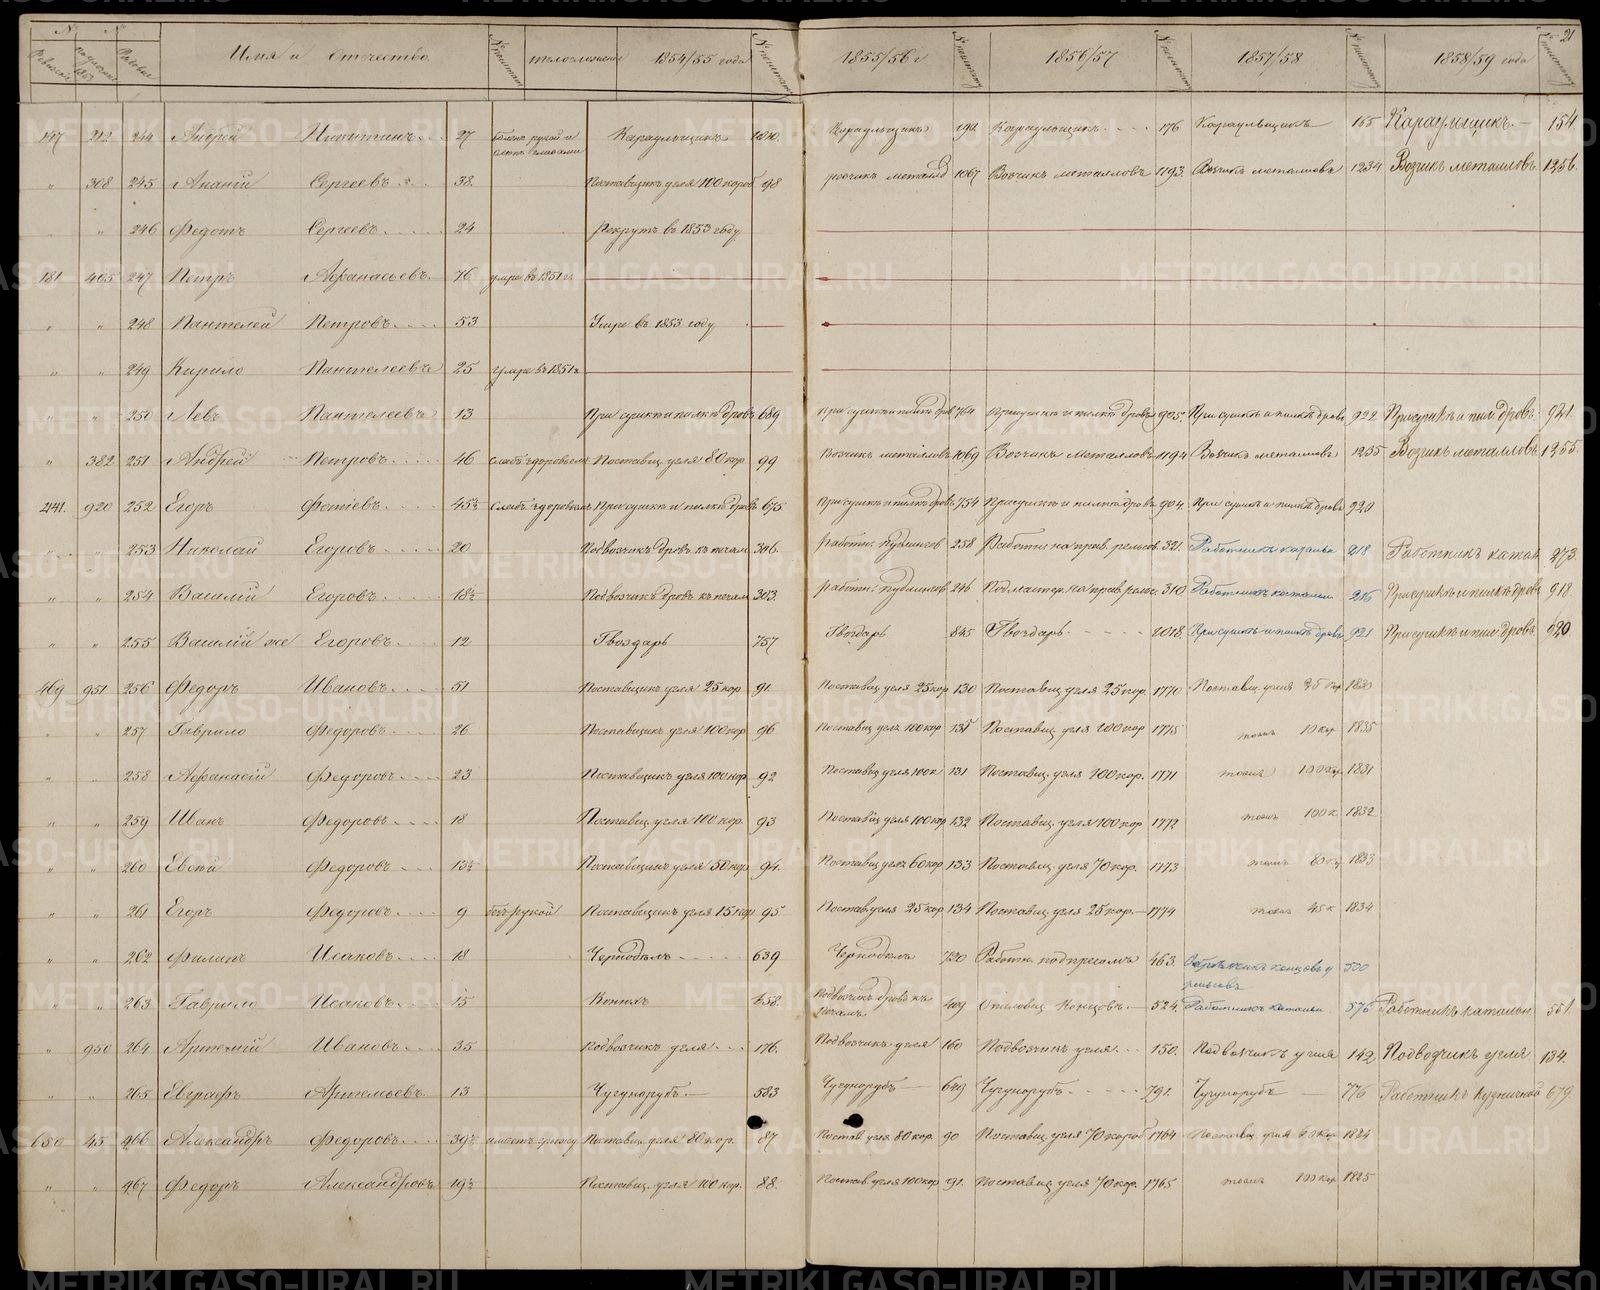 21
№ № Имя и отчество телосложение 1854/55 года 1855/56 г 1856/57 1857/58 1858/59 года
147 212 244 Андрей Никитинъ 27 боленъ рукой и Караульщикъ Караульщикъ 192 Караульщикъ 176 Караульщикъ 155 Караульщикъ 154
слепъ глазами
" 308 245 Ананiй Сергеевъ 38 Поставщикъ угля 100 короб 98 металлъ 1067 Возчикъ металловъ 1193 Возчикъ металловъ 1234 Возчикъ металловъ 1256
" " 246 Федотъ Сергеевъ 24 Рекрутъ въ 1853 году
181 405 247 Петръ Афанасьевъ 76 умре въ 1851 г.
" " 248 Пантелей Петровъ 53 Умре въ 1853 году
" " 249 Кирило Пантелеевъ 25 умре въ 1851 г
" " 250 Левъ Пантелеевъ 13 При сушкѣ и пилкѣ дровъ 689 При сушкѣ и пилкѣ дровъ 764 При сушкѣ и пилкѣ дровъ 905 При сушкѣ и пилкѣ дровъ 922 При сушкѣ и пил. дровъ 921
" 382 251 Андрей Петровъ 46 слабъ здоровьемъ Поставщ. угля 80 кор 99 Возчикъ металловъ 1069 Возчикъ металловъ 1194 Возчикъ металловъ 1235 Возчикъ металловъ 1255
241 920 252 Егоръ Фотiевъ 45½ слабъ здоровьемъ При сушкѣ и пилкѣ дровъ 675 При сушкѣ и пилкѣ дровъ 754 При сушкѣ и пилкѣ дровъ 904 При сушкѣ и пилкѣ дровъ 920
" " 253 Николай Егоровъ 20 Подвозчикъ дровъ къ печам 306 работн. пудлингов 258 Работн. на прив. рельсов 321 Работникъ катальн 218 Работникъ катал 273
" " 254 Василiй Егоровъ 18½ Подвозчикъ дровъ къ печам 303 работн. пудлингов 246 Подмастер. на прив. рельс 310 Работникъ катальн 216 При сушкѣ и пилкѣ дровъ 918
" " 255 Василiй же Егоровъ 12 Гвоздарь 757 Гвоздарь 845 Гвоздарь 2018 При сушкѣ и пилкѣ дровъ 921 При сушкѣ и пил. дровъ 920
469 951 256 Федоръ Ивановъ 51 Поставщикъ угля 25 кор 91 Поставщ. угля 25 кор 130 Поставщ. угля 25 кор. 1770 Поставщ. угля 25 кор 1830
" " 257 Гаврило Федоровъ 26 Поставщикъ угля 100 кор 96 Поставщ угля 100 кор 135 Поставщ. угля 100 кор 1775 тоже 10 кор 1835
" " 258 Афанасiй Федоровъ 23 Поставщикъ угля 100 кор 92 Поставщ угля 100 к 131 Поставщ. угля 100 кор. 1771 тоже 100 кор 1831
" " 259 Иванъ Федоровъ 18 Поставщ. угля 100 кор. 93 Поставщ угля 100 кор 132 Поставщ. угля 100 кор 1772 тоже 100 к 1832
" " 260 Евсѣй Федоровъ 13½ Поставщикъ угля 50 кор 94 Поставщ угля 60 кор 133 Поставщ. угля 70 кор. 1773 тоже 80 к 1833
" " 261 Егоръ Федоровъ 9 безрукой Поставщикъ угля 15 кор 95 Постав. угля 25 кор 134 Поставщ. угля 25 кор. 1774 тоже 45 к 1834
" " 262 Филипъ Исаковъ 18 Чернодѣлъ 639 Чернодѣлъ 720 Работн. под пресомъ 463 концовъ у 500
рельсовъ
" " 263 Гаврило Исаковъ 15 Конюхъ 458 Подвозчикъ дровъ къ 409 Концовъ 524 Работникъ катальн 576 Работникъ катальн. 551
печамъ
" 950 264 Артемiй Ивановъ 35 Подвозчикъ угля 176 Подвозчикъ угля 160 Подвозчикъ угля 150 Подвозчикъ угля 142 Подвозчикъ угля 134
" " 265 Евграфъ Артемьевъ 13 Чугунорубъ 583 Чугунорубъ 649 Чугунорубъ 791 Чугунорубъ 776 Работникъ кузничной 679
650 45 466 Александръ Федоровъ 39½ имѣетъ грыжу Поставщ. угля 80 кор. 87 Постав угля 80 кор. 90 Поставщ. угля 70 короб 1764 Поставщ угля 60 кор 1824
" " 467 Федоръ Александровъ 19½ Поставщ. угля 100 кор. 88 Постав угля 100 кор 91 Поставщ. угля 70 кор. 1765 тоже 100 кор 1825
METRIKI.GASO-URAL.RU